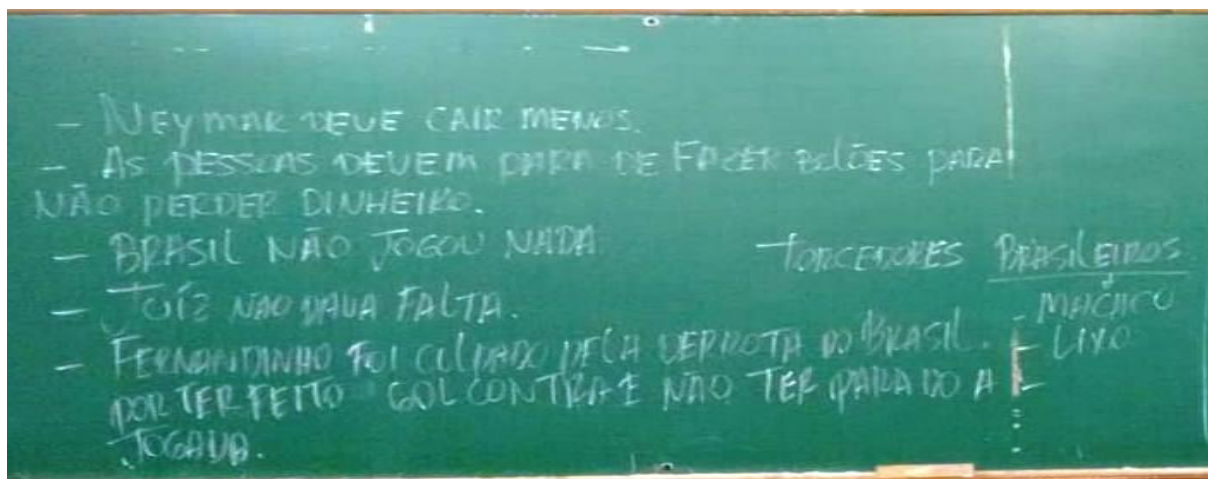 - NEYMAR DEVE CAIR MENOS.
- AS PESSOAS DEVEM PARA DE FAZER BOLÕES PARA
NÃO PERDER DINHEIRO.
- BRASIL NÃO JOGOU NADA
- JUÍZ NAO DAVA FALTA.
- FERNANDINHO FOI CULPADO PELA DERROTA DO BRASIL.
POR TER FEITO GOL CONTRA E NÃO TER PARADO A
JOGADA.
TORCEDORES BRASILEIROS
- MACACO
- LIXO
-